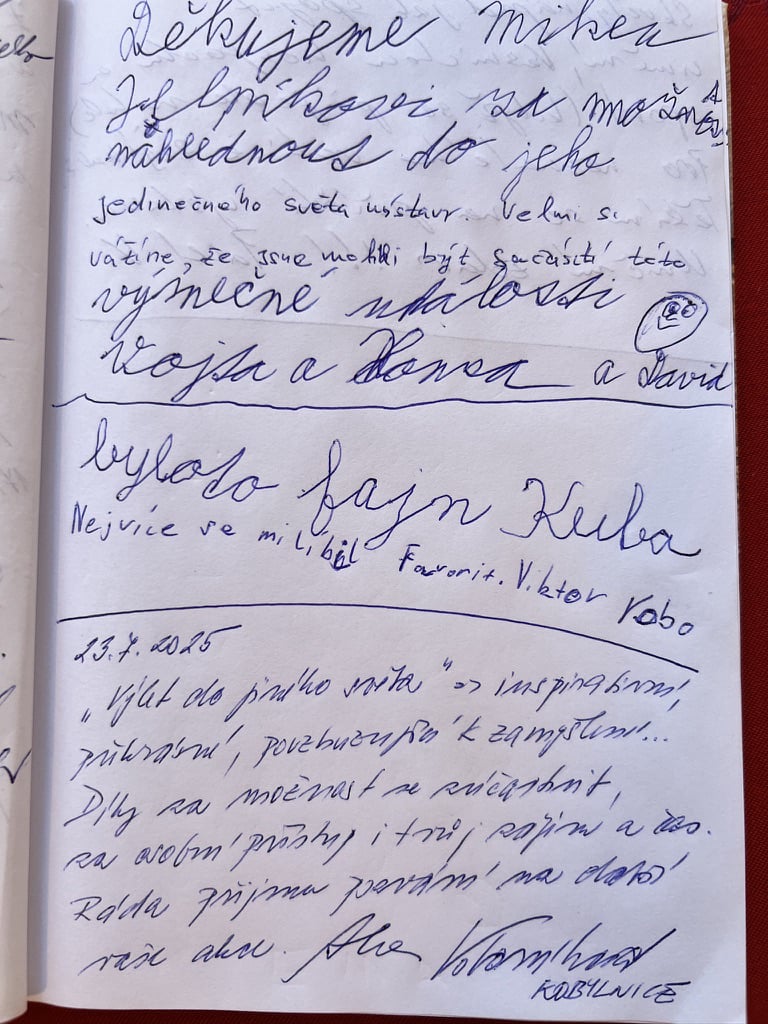 Děkujeme Mikeu
za možnos
náhlédnout do jeho
jedinečného světa výstavy. Velmi si
vážíme, že jsme mohli být součástí této
výjmečné události
Vojta a Honza a David
byloto fajn Kuba
Nejvíce se mi líbil Favorit. Viktor Vobo
23.7.2025
"Výlet do jiného světa" => inspirativní,
překrásné, povzbuzující k zamyšlení...
Díky za možnost se zúčastnit,
za osobní přístup i tvůj zájem a čas.
Ráda přijmu pozvání na další
vaše akce.
KOBYLNICE